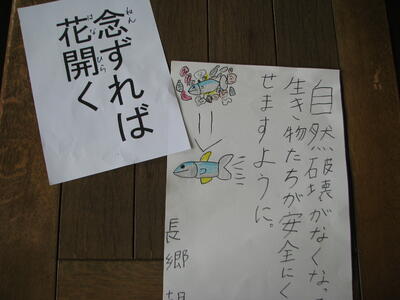 念ずれば
ねん
花開く
はなひら
自然破壊がなくな
生き物たちが安全にく
せますように。
長郷